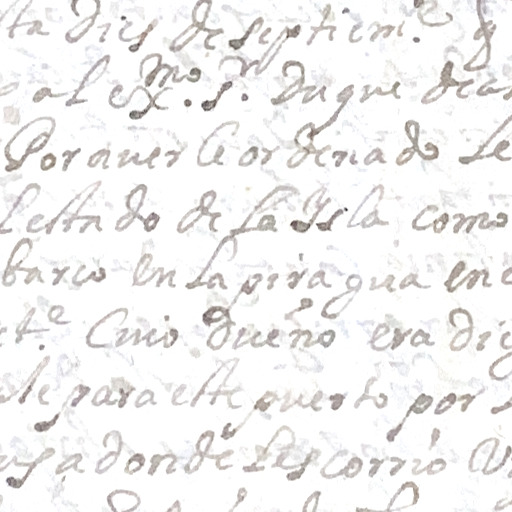 ta dies de septiem.e q
al exmo. sr. Duque de
Por aver le ordenado le
lestado de la Ysla como
barco en la piragua en
te. Cuio dueño era
para este puerto por
adonde les corrio